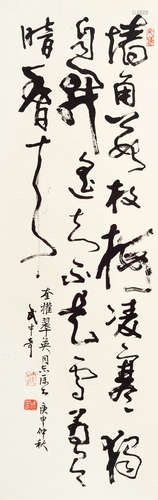 墙角数枝梅凌寒独
自开遥知不是雪为有
暗香来
翠英同志属书 庚申仲秋
武中奇